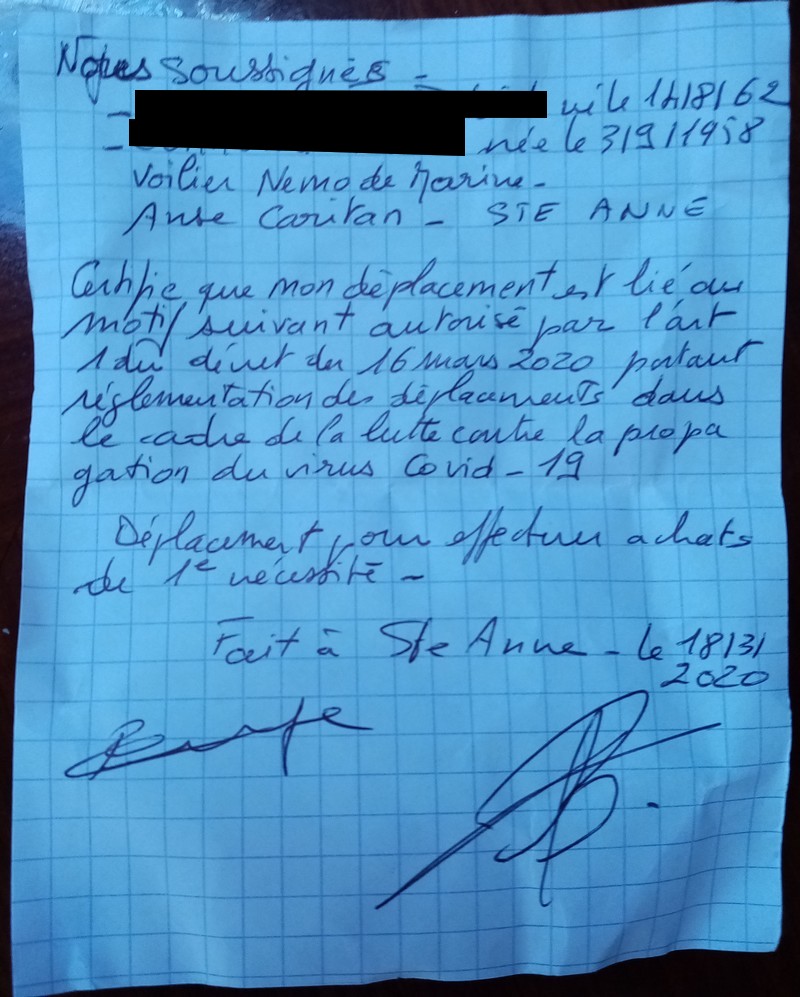 Nous soussignés -
- né le 14/8/62
- née le 3/9/1958
Voilier Nemo de Marine -
Anse Caritan - STE ANNE
Certifie que mon déplacement est lié au
motif suivant autorisé par l'art
1 du décret du 16 mars 2020 portant
réglementation des déplacements dans
le cadre de la lutte contre la propa
gation du virus Covid - 19
Déplacement pour effectuer achats
de 1e nécessité -
Fait à Ste Anne - le 18/3/
2020